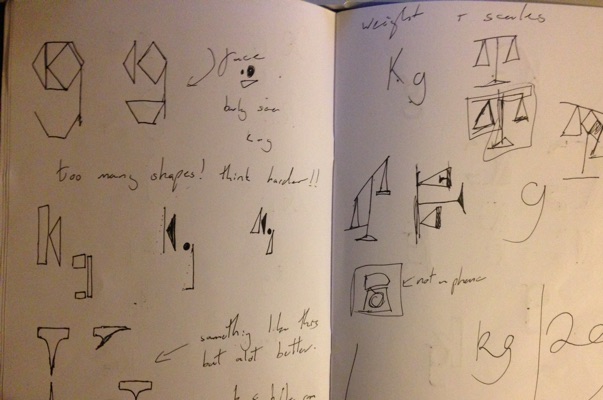 face
body
K g
too many shapes! think harder!!
K
g
K
something like this
but alot better.
weight + scales
Kg
g
not a phone
kg